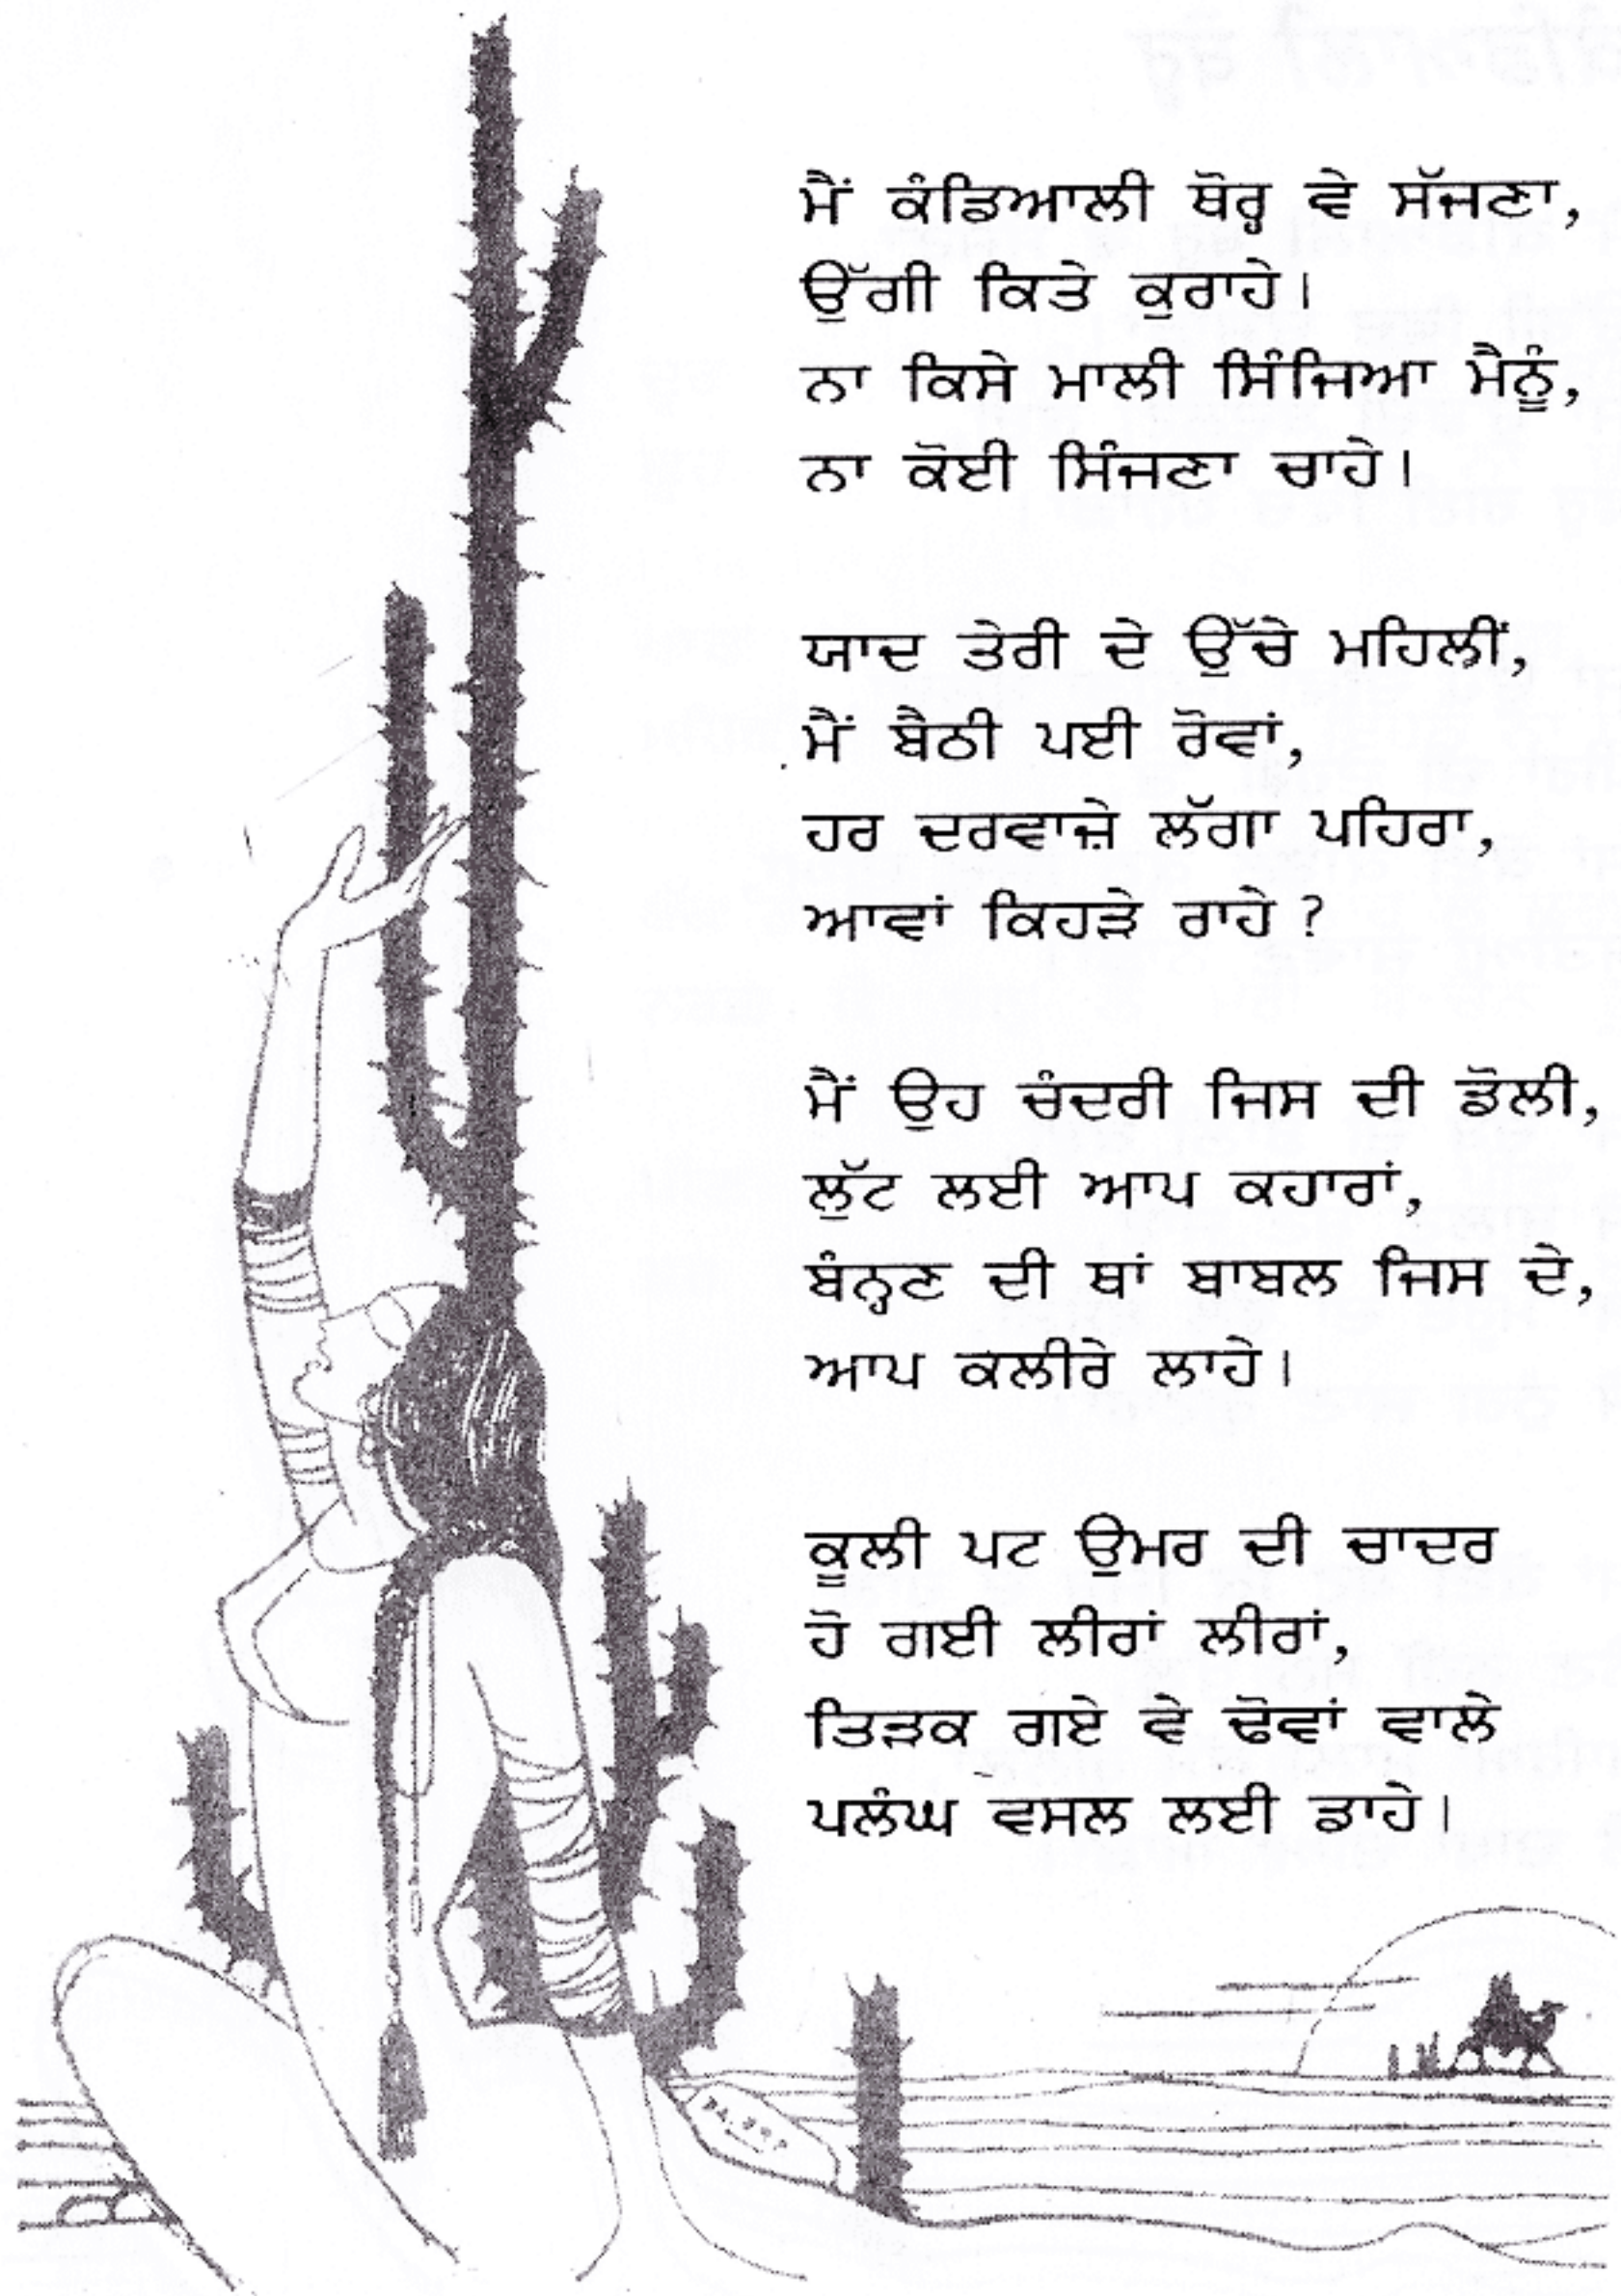 ਮੈਂ ਕੰਡਿਆਲੀ ਥੋਰ੍ਹ ਵੇ ਸੱਜਣਾ,
ਉੱਗੀ ਕਿਤੇ ਕੁਰਾਹੇ।
ਨਾ ਕਿਸੇ ਮਾਲੀ ਸਿੰਜਿਆ ਮੈਨੂੰ,
ਨਾ ਕੋਈ ਸਿੰਜਣਾ ਚਾਹੇ।
ਯਾਦ ਤੇਰੀ ਦੇ ਉੱਚੇ ਮਹਿਲੀਂ,
ਮੈਂ ਬੈਠੀ ਪਈ ਰੋਵਾਂ,
ਹਰ ਦਰਵਾਜ਼ੇ ਲੱਗਾ ਪਹਿਰਾ,
ਆਵਾਂ ਕਿਹੜੇ ਰਾਹੇ ?
ਮੈਂ ਉਹ ਚੰਦਰੀ ਜਿਸ ਦੀ ਡੋਲੀ,
ਲੁੱਟ ਲਈ ਆਪ ਕਹਾਰਾਂ,
ਬੰਨ੍ਹਣ ਦੀ ਥਾਂ ਬਾਬਲ ਜਿਸ ਦੇ,
ਆਪ ਕਲੀਰੇ ਲਾਹੇ।
ਕੂਲੀ ਪਟ ਉਮਰ ਦੀ ਚਾਦਰ
ਹੋ ਗਈ ਲੀਰਾਂ ਲੀਰਾਂ,
ਤਿੜਕ ਗਏ ਵੇ ਢੋਵਾਂ ਵਾਲੇ
ਪਲੰਘ ਵਸਲ ਲਈ ਡਾਹੇ।